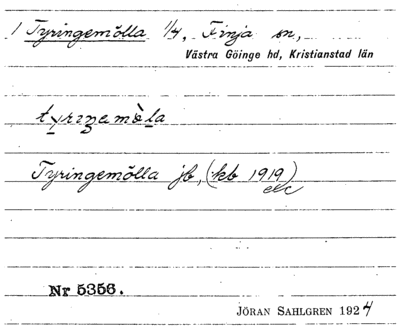 1 Tyringemölla 1/4, Finja sn,
Västra Göinge hd, Kristianstad län
Tyringemölla jb, (kb 1919)
etc
Nr 5356.
JÖRAN SAHLGREN 1924